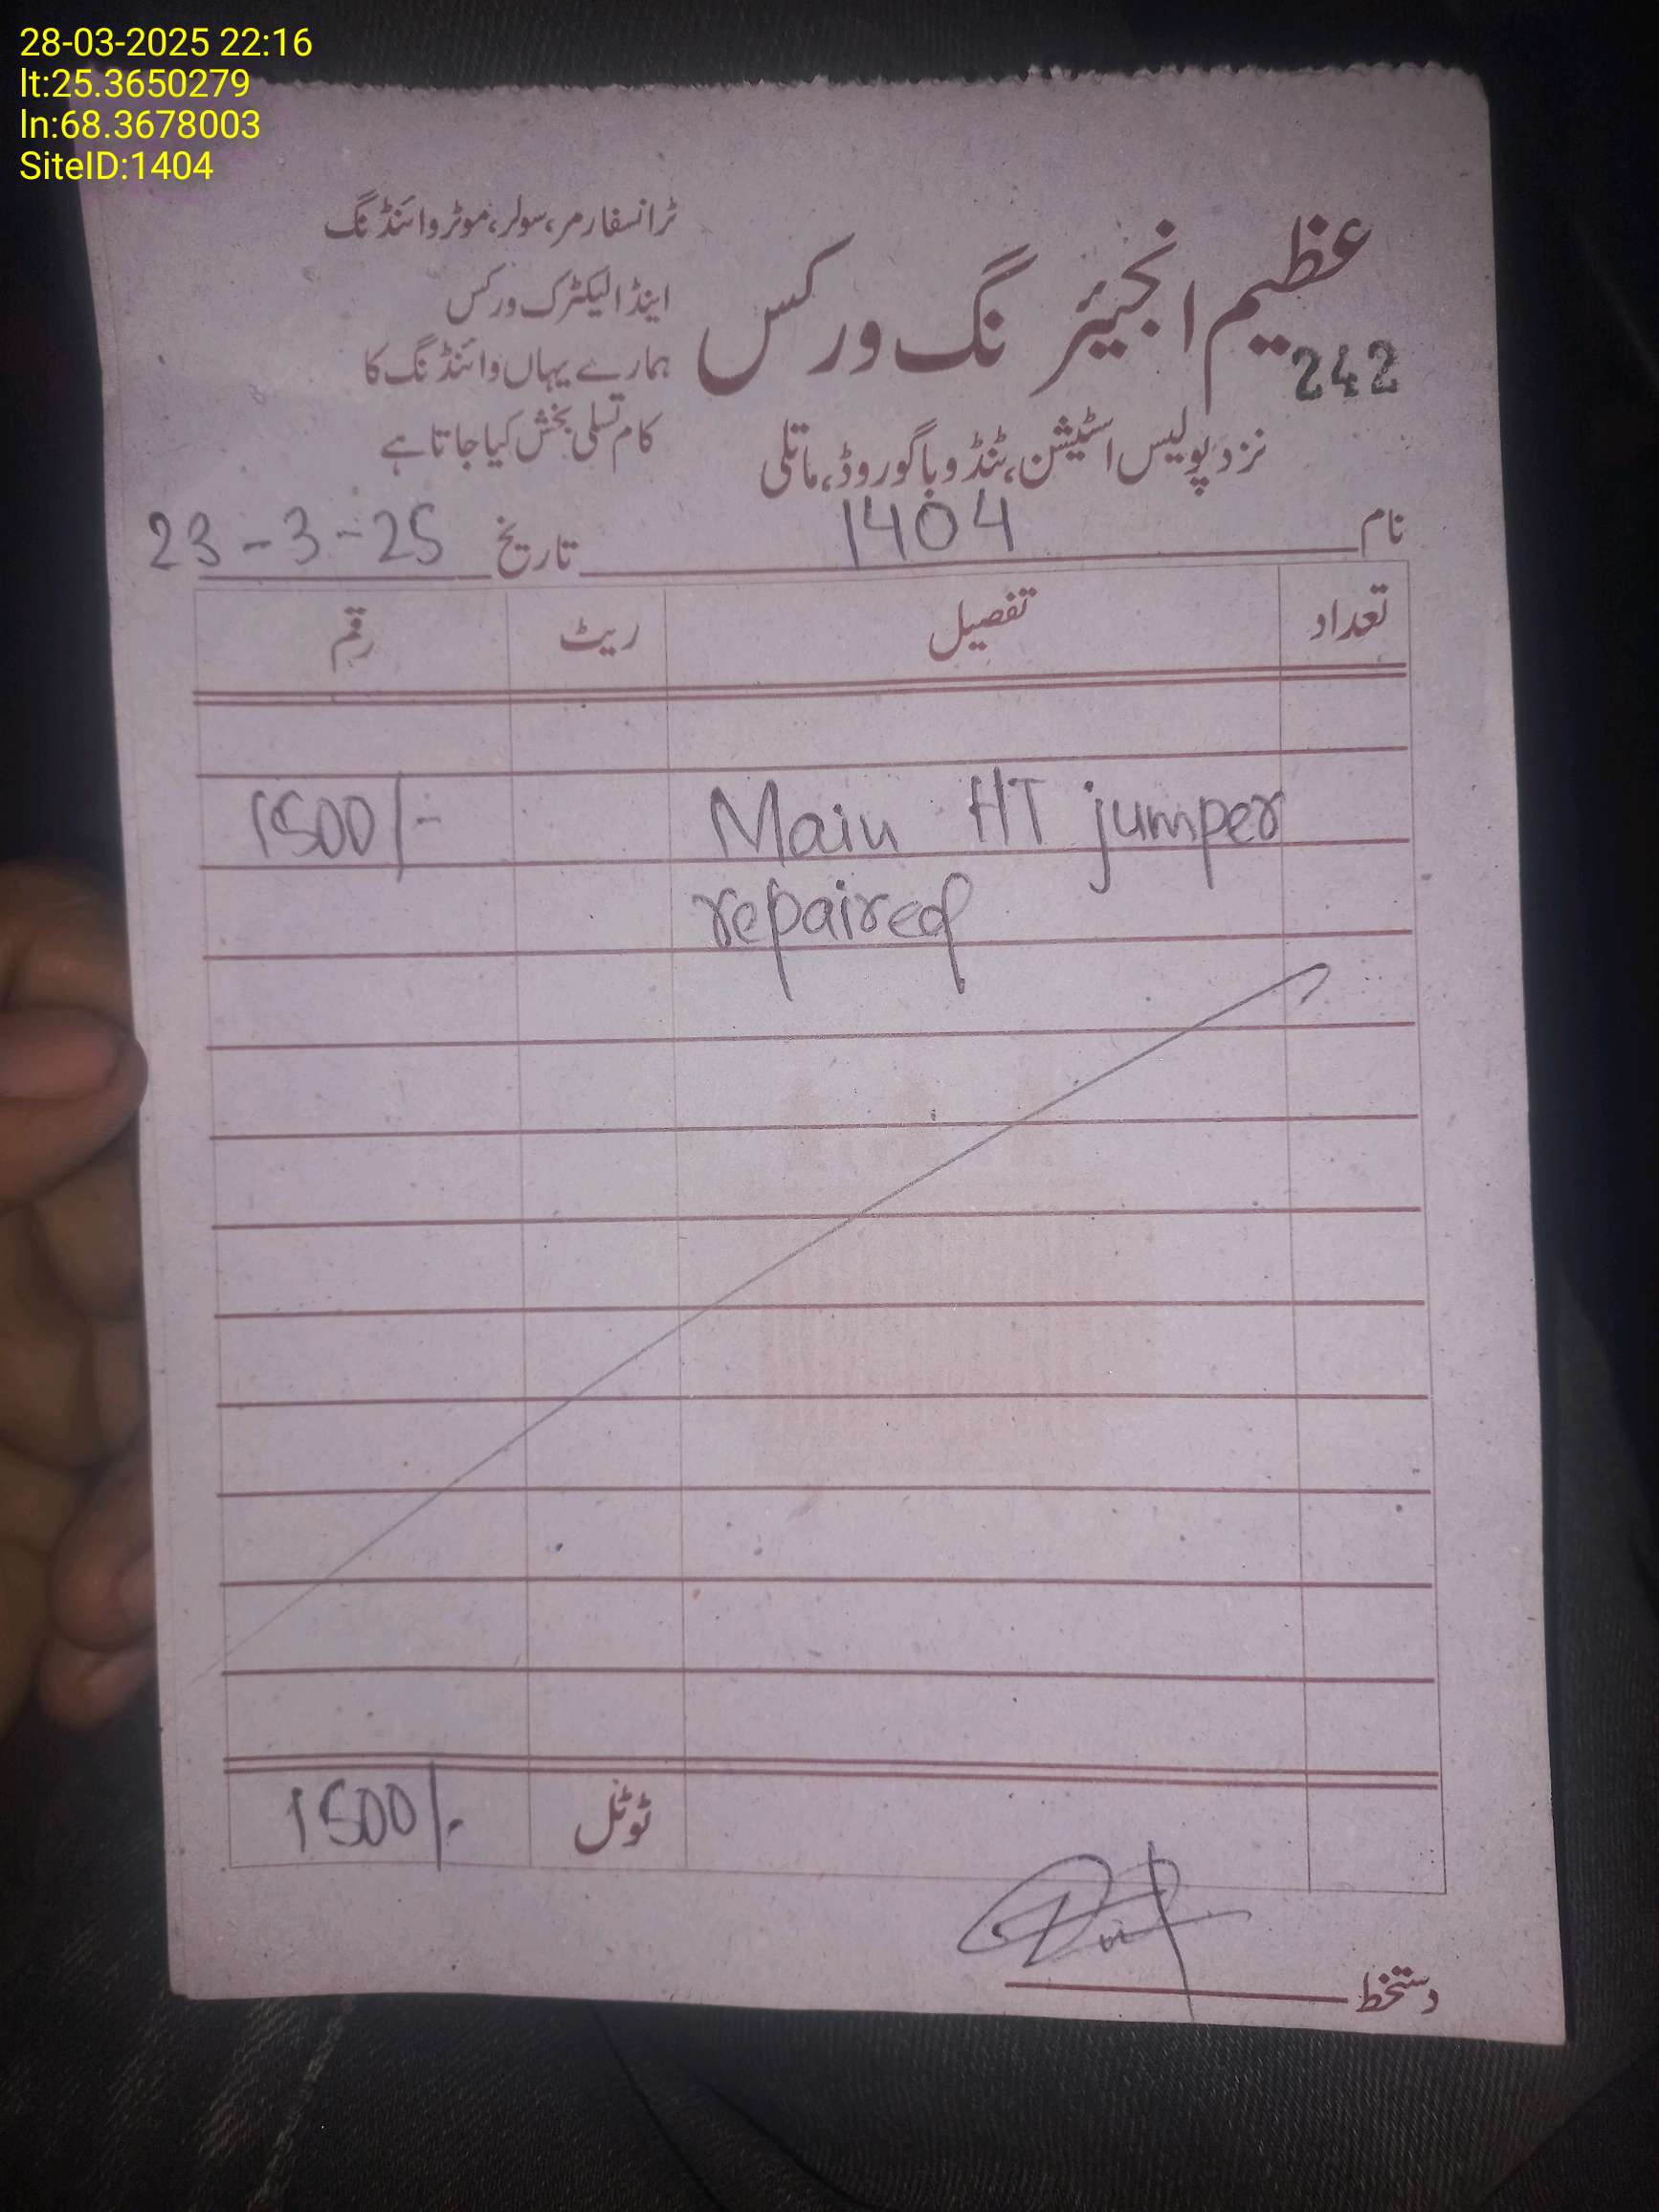 28-03-2025 22:16
lt:25.3650279
ln:68.3678003
SiteID:1404
عظیم انجیئرنگ ورکس
242
نزد پولیس اسٹیشن، ٹنڈو باگو روڈ، ماتلی
ٹرانسفارمر، سولر، موٹر وائنڈنگ
اینڈ الیکٹرک ورکس
ہمارے یہاں وائنڈنگ کا
کام تسلی بخش کیا جاتا ہے
نام 1404 تاریخ 23-3-25
تعداد تفصیل ریٹ رقم
Main HT jumper 1500/-
repaired
ٹوٹل 1500/-
دستخط